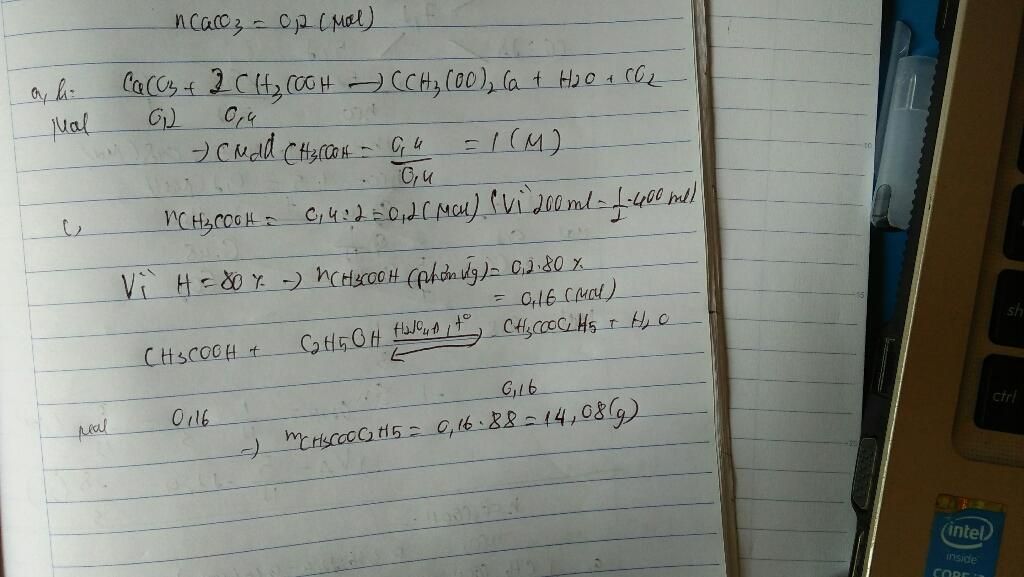 nCaCO3 = 0,2 (mol)
a, b: CaCO3 + 2 CH3COOH → (CH3COO)2 Ca + H2O + CO2
Mol 0,2 0,4
→ CMdd CH3COOH = 0,4/0,4 = 1 (M)
c, nCH3COOH = 0,4 : 2 = 0,2 (mol) (Vì 200 ml = 1/2 . 400 ml)
Vì H = 80 % → nCH3COOH (phản ứg) = 0,2.80 %
= 0,16 (mol)
CH3COOH + C2H5OH H2SO4đ, t° ⇌ CH3COOC2H5 + H2O
mol 0,16 0,16
→ mCH3COOC2H5 = 0,16 . 88 = 14,08 (g)
sh
ctrl
intel
inside
CORE